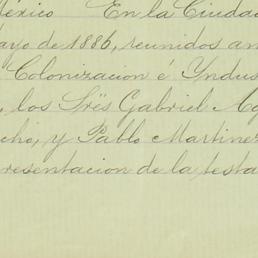 México En la Ciudad
ayo de 1886, reunidos an
Colonizacion é Indus
, los Sres Gabriel
cho, y Pablo Martinez
presentacion de la testa